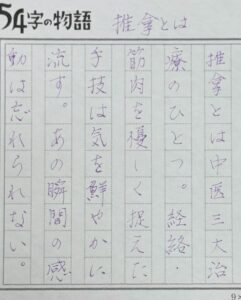 54字の物語
推拿とは
推拿とは中医三大治
療のひとつ。経絡・
筋肉を優しく捉えた
手技は気を鮮やかに
流す。あの瞬間の感
動は忘れられない。